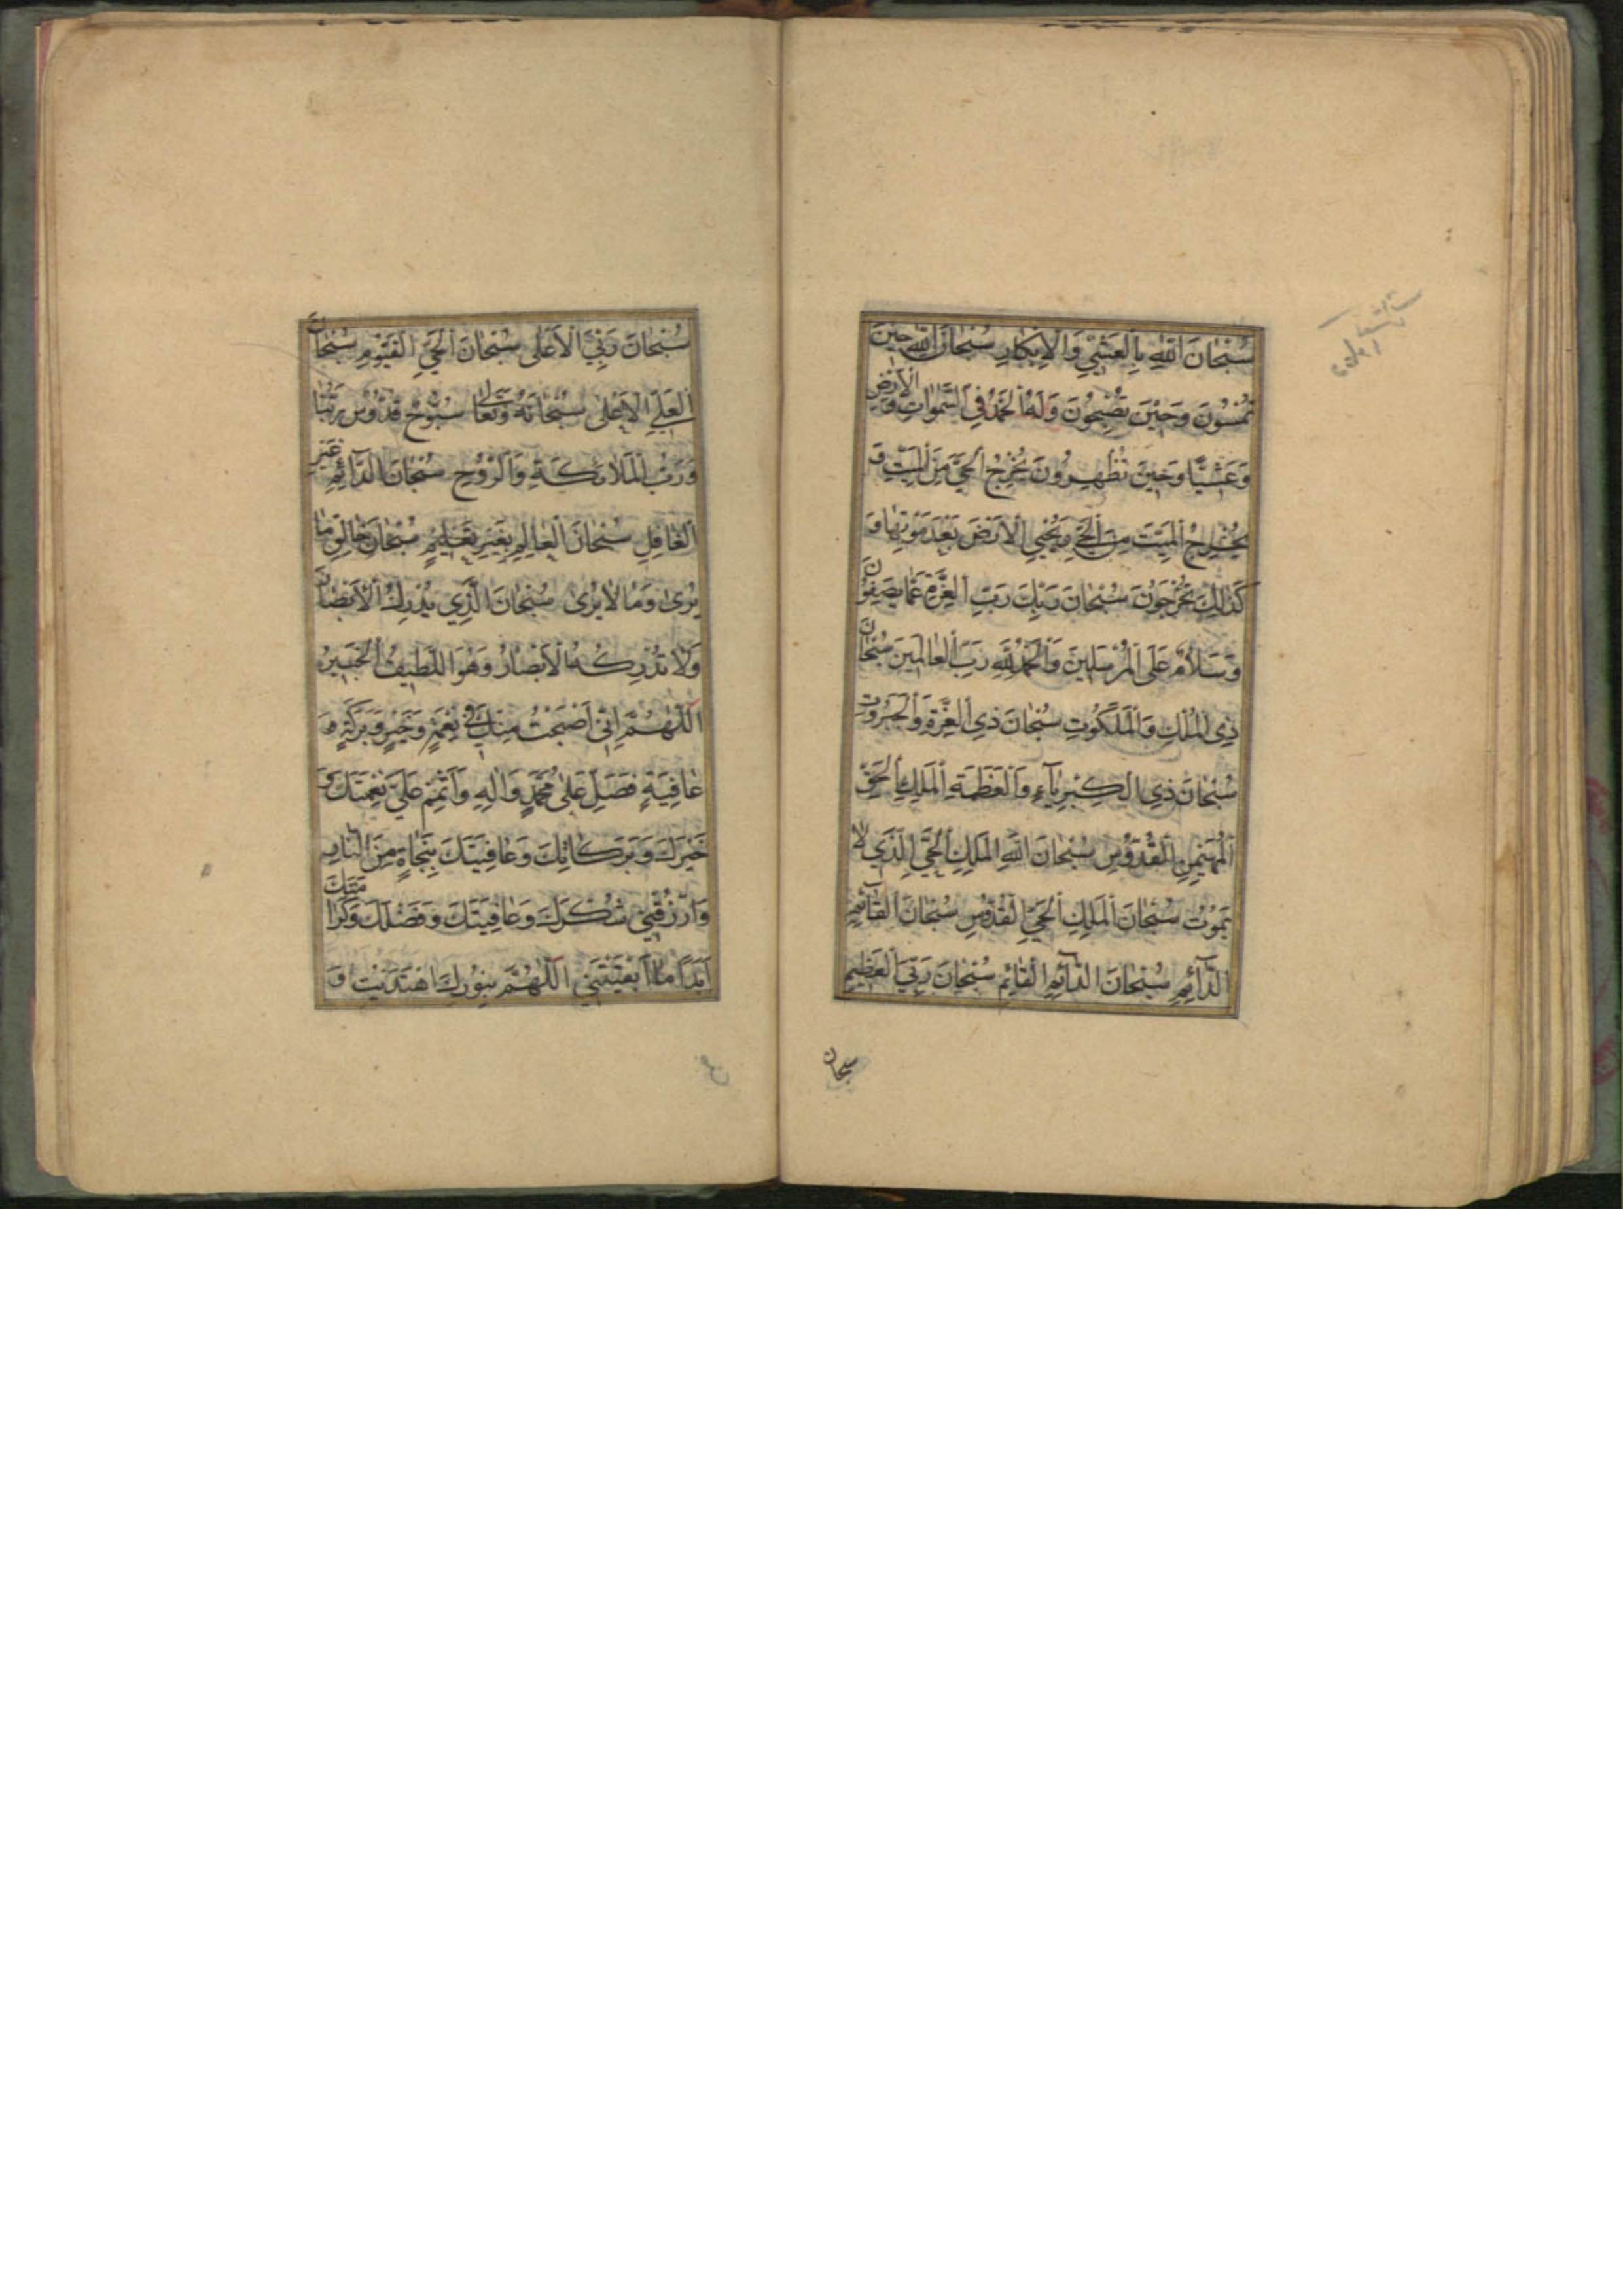 سُبْحَانَ اللّٰهِ بِالْعَشِيِّ وَالْاِبْكَارِ سُبْحَانَ اللّٰهِ حِينَ
تُمْسُونَ وَحِينَ تُصْبِحُونَ وَلَهُ الْحَمْدُ فِي السَّمٰوَاتِ وَالْاَرْضِ
وَعَشِيًّا وَحِينَ تُظْهِرُونَ يُخْرِجُ الْحَيَّ مِنَ الْمَيِّتِ وَ
يُخْرِجُ الْمَيِّتَ مِنَ الْحَيِّ وَيُحْيِي الْاَرْضَ بَعْدَ مَوْتِهَا وَ
كَذٰلِكَ تُخْرَجُونَ سُبْحَانَ رَبِّكَ رَبِّ الْعِزَّةِ عَمَّا يَصِفُونَ
وَسَلَامٌ عَلَى الْمُرْسَلِينَ وَالْحَمْدُ لِلّٰهِ رَبِّ الْعَالَمِينَ سُبْحَانَ
ذِي الْمُلْكِ وَالْمَلَكُوتِ سُبْحَانَ ذِي الْعِزَّةِ وَالْجَبَرُوتِ
سُبْحَانَ ذِي الْكِبْرِيَآءِ وَالْعَظَمَةِ الْمَلِكِ الْحَقِّ
الْمُهَيْمِنِ الْقُدُّوسِ سُبْحَانَ اللّٰهِ الْمَلِكِ الْحَيِّ الَّذِي لَا
يَمُوتُ سُبْحَانَ الْمَلِكِ الْحَيِّ الْقُدُّوسِ سُبْحَانَ الْقَآئِمِ
الدَّآئِمِ سُبْحَانَ الدَّآئِمِ الْقَائِمِ سُبْحَانَ رَبِّيَ الْعَظِيمِ
سبحان
سُبْحَانَ رَبِّيَ الْاَعْلٰى سُبْحَانَ الْحَيِّ الْقَيُّومِ سُبْحَانَ
الْعَلِيِّ الْاَعْلٰى سُبْحَانَهُ وَتَعَالٰى سُبُّوحٌ قُدُّوسٌ رَبُّنَا
وَرَبُّ الْمَلَائِكَةِ وَالرُّوحِ سُبْحَانَ الدَّآئِمِ غَيْرِ
الْغَافِلِ سُبْحَانَ الْعَالِمِ بِغَيْرِ تَعْلِيمٍ سُبْحَانَ خَالِقِ مَا
يُرٰى وَمَا لَا يُرٰى سُبْحَانَ الَّذِي يُدْرِكُ الْاَبْصَارَ
وَلَا تُدْرِكُهُ الْاَبْصَارُ وَهُوَ اللَّطِيفُ الْخَبِيرُ
اَللّٰهُمَّ اِنِّي اَصْبَحْتُ مِنْكَ فِي نِعْمَةٍ وَخَيْرٍ وَبَرَكَةٍ وَ
عَافِيَةٍ فَصَلِّ عَلٰى مُحَمَّدٍ وَاٰلِهِ وَاَتْمِمْ عَلَيَّ نِعْمَتَكَ وَ
خَيْرَكَ وَبَرَكَاتِكَ وَعَافِيَتَكَ بِنَجَاةٍ مِنَ النَّارِ
وَارْزُقْنِي شُكْرَكَ وَعَافِيَتَكَ وَفَضْلَكَ وَكَرَامَتَكَ
اَبَدًا مَا اَبْقَيْتَنِي اَللّٰهُمَّ بِنُورِكَ اهْتَدَيْتُ وَ